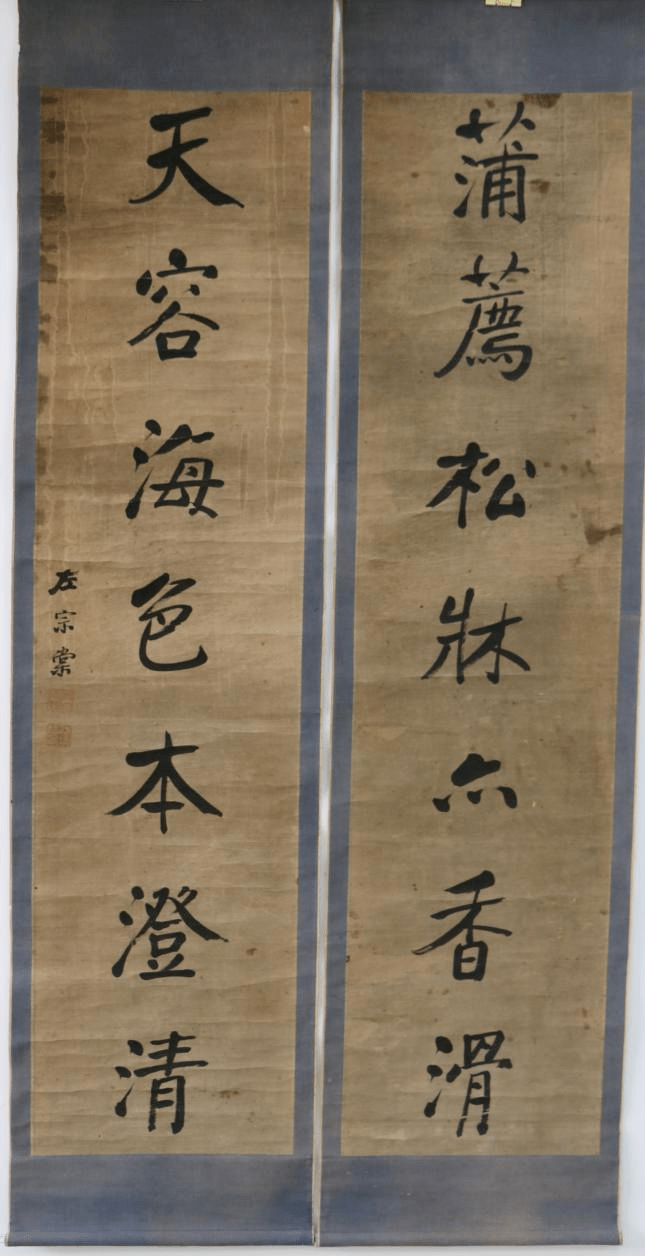 蒲薦松牀亦香滑
天容海色本澄清
左宗棠